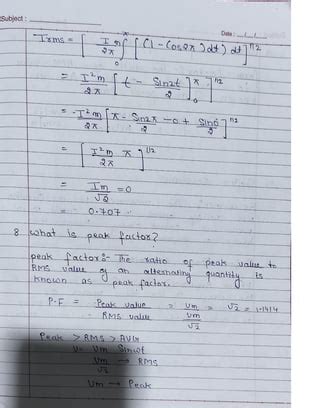 Subject :
Date : .../.../...
Irms = [ I²m/2π ∫₀^π [(1 - Cos2π) dt) dt ]^1/2
= I²m/2π [ t - Sin2t/2 ]₀^π ]^1/2
= I²m/2π [ π - Sin2π/2 - 0 + Sin0/2 ]^1/2
= [ I²m/2π π ]^1/2
= Im/√2 = 0
= 0.707
8. What is peak factor?
peak factor:- The ratio of peak value to
RMS value of an alternating quantity is
known as peak factor.
P.F = Peak value / RMS value = Vm / Vm/√2 = √2 = 1.1414
Peak > RMS > AVG
V = Vm Sinωt
Vm/√2 → RMS
Vm → Peak